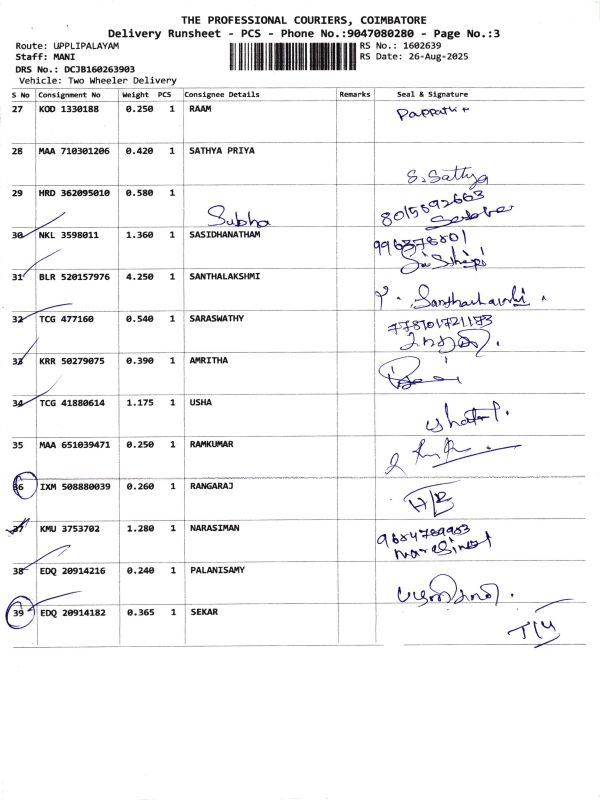 THE PROFESSIONAL COURIERS, COIMBATORE
Delivery Runsheet - PCS - Phone No.:9047080280 - Page No.:3
Route: UPPLIPALAYAM RS No.: 1602639
Staff: MANI RS Date: 26-Aug-2025
DRS No.: DCJB160263903
Vehicle: Two Wheeler Delivery
S No Consignment No Weight PCS Consignee Details Remarks Seal & Signature
27 KOD 1330188 0.250 1 RAAM
28 MAA 710301206 0.420 1 SATHYA PRIYA
S. Sathya
29 HRD 362095010 0.580 1
Subha 8015892663
30 NKL 3598011 1.360 1 SASIDHANATHAM
31 BLR 520157976 4.250 1 SANTHALAKSHMI
32 TCG 477160 0.540 1 SARASWATHY
33 KRR 50279075 0.390 1 AMRITHA
34 TCG 41880614 1.175 1 USHA
35 MAA 651039471 0.250 1 RAMKUMAR
36 IXM 508880039 0.260 1 RANGARAJ
37 KMU 3753702 1.280 1 NARASIMAN
38 EDQ 20914216 0.240 1 PALANISAMY
39 EDQ 20914182 0.365 1 SEKAR